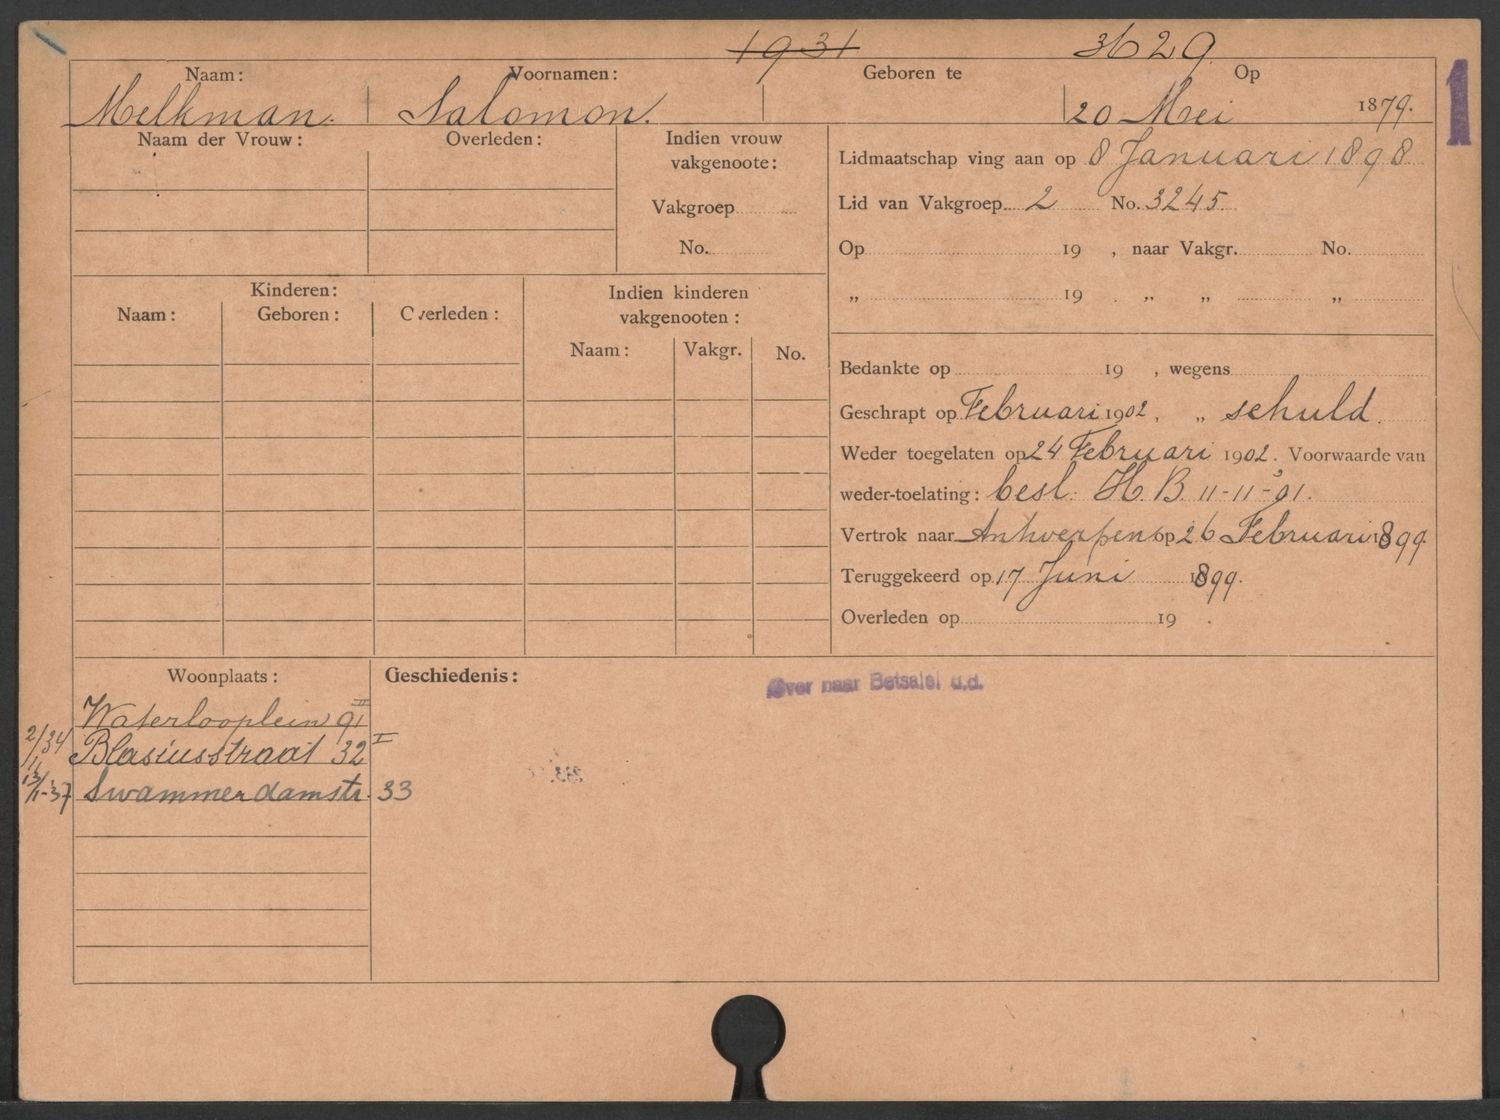 1931 3629
Naam: Voornamen: Geboren te Op
Melkman. Salomon. 20 Mei 1879.
1
Naam der Vrouw: Overleden: Indien vrouw vakgenoote:
Vakgroep
No.
Lidmaatschap ving aan op 8 Januari 1898
Lid van Vakgroep 2 No. 3245
Op 19 , naar Vakgr. No.
„ 19 . „ „ „
Kinderen:
Naam: Geboren: Overleden:
Indien kinderen vakgenooten:
Naam: Vakgr. No.
Bedankte op 19 , wegens
Geschrapt op Februari 1902, „ schuld.
Weder toegelaten op 24 Februari 1902. Voorwaarde van
weder-toelating: besl. H.B. 11-11-'01.
Vertrok naar Antwerpen op 26 Februari 1899
Teruggekeerd op 17 Juni 1899.
Overleden op 19 .
Woonplaats: Geschiedenis:
Over naar Betsalel d.d.
Waterlooplein 91 II
2/11 34 Blasiusstraat 32 I
13/1-37 Swammerdamstr. 33